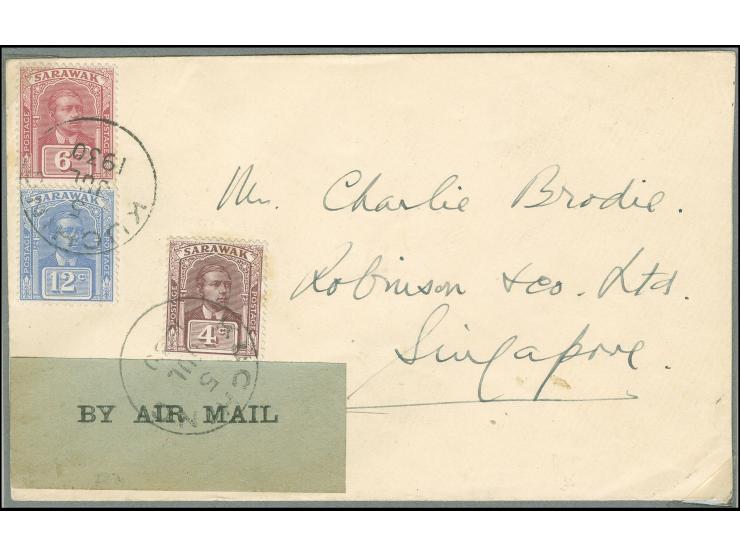 SARAWAK
POSTAGE POSTAGE
6c
KUCHING
5
JUL
1930
SARAWAK
POSTAGE POSTAGE
12c
SARAWAK
POSTAGE POSTAGE
4c
5
JUL
BY AIR MAIL
Mr. Charlie Brodie.
Robinson & Co. Ltd.
Singapore.